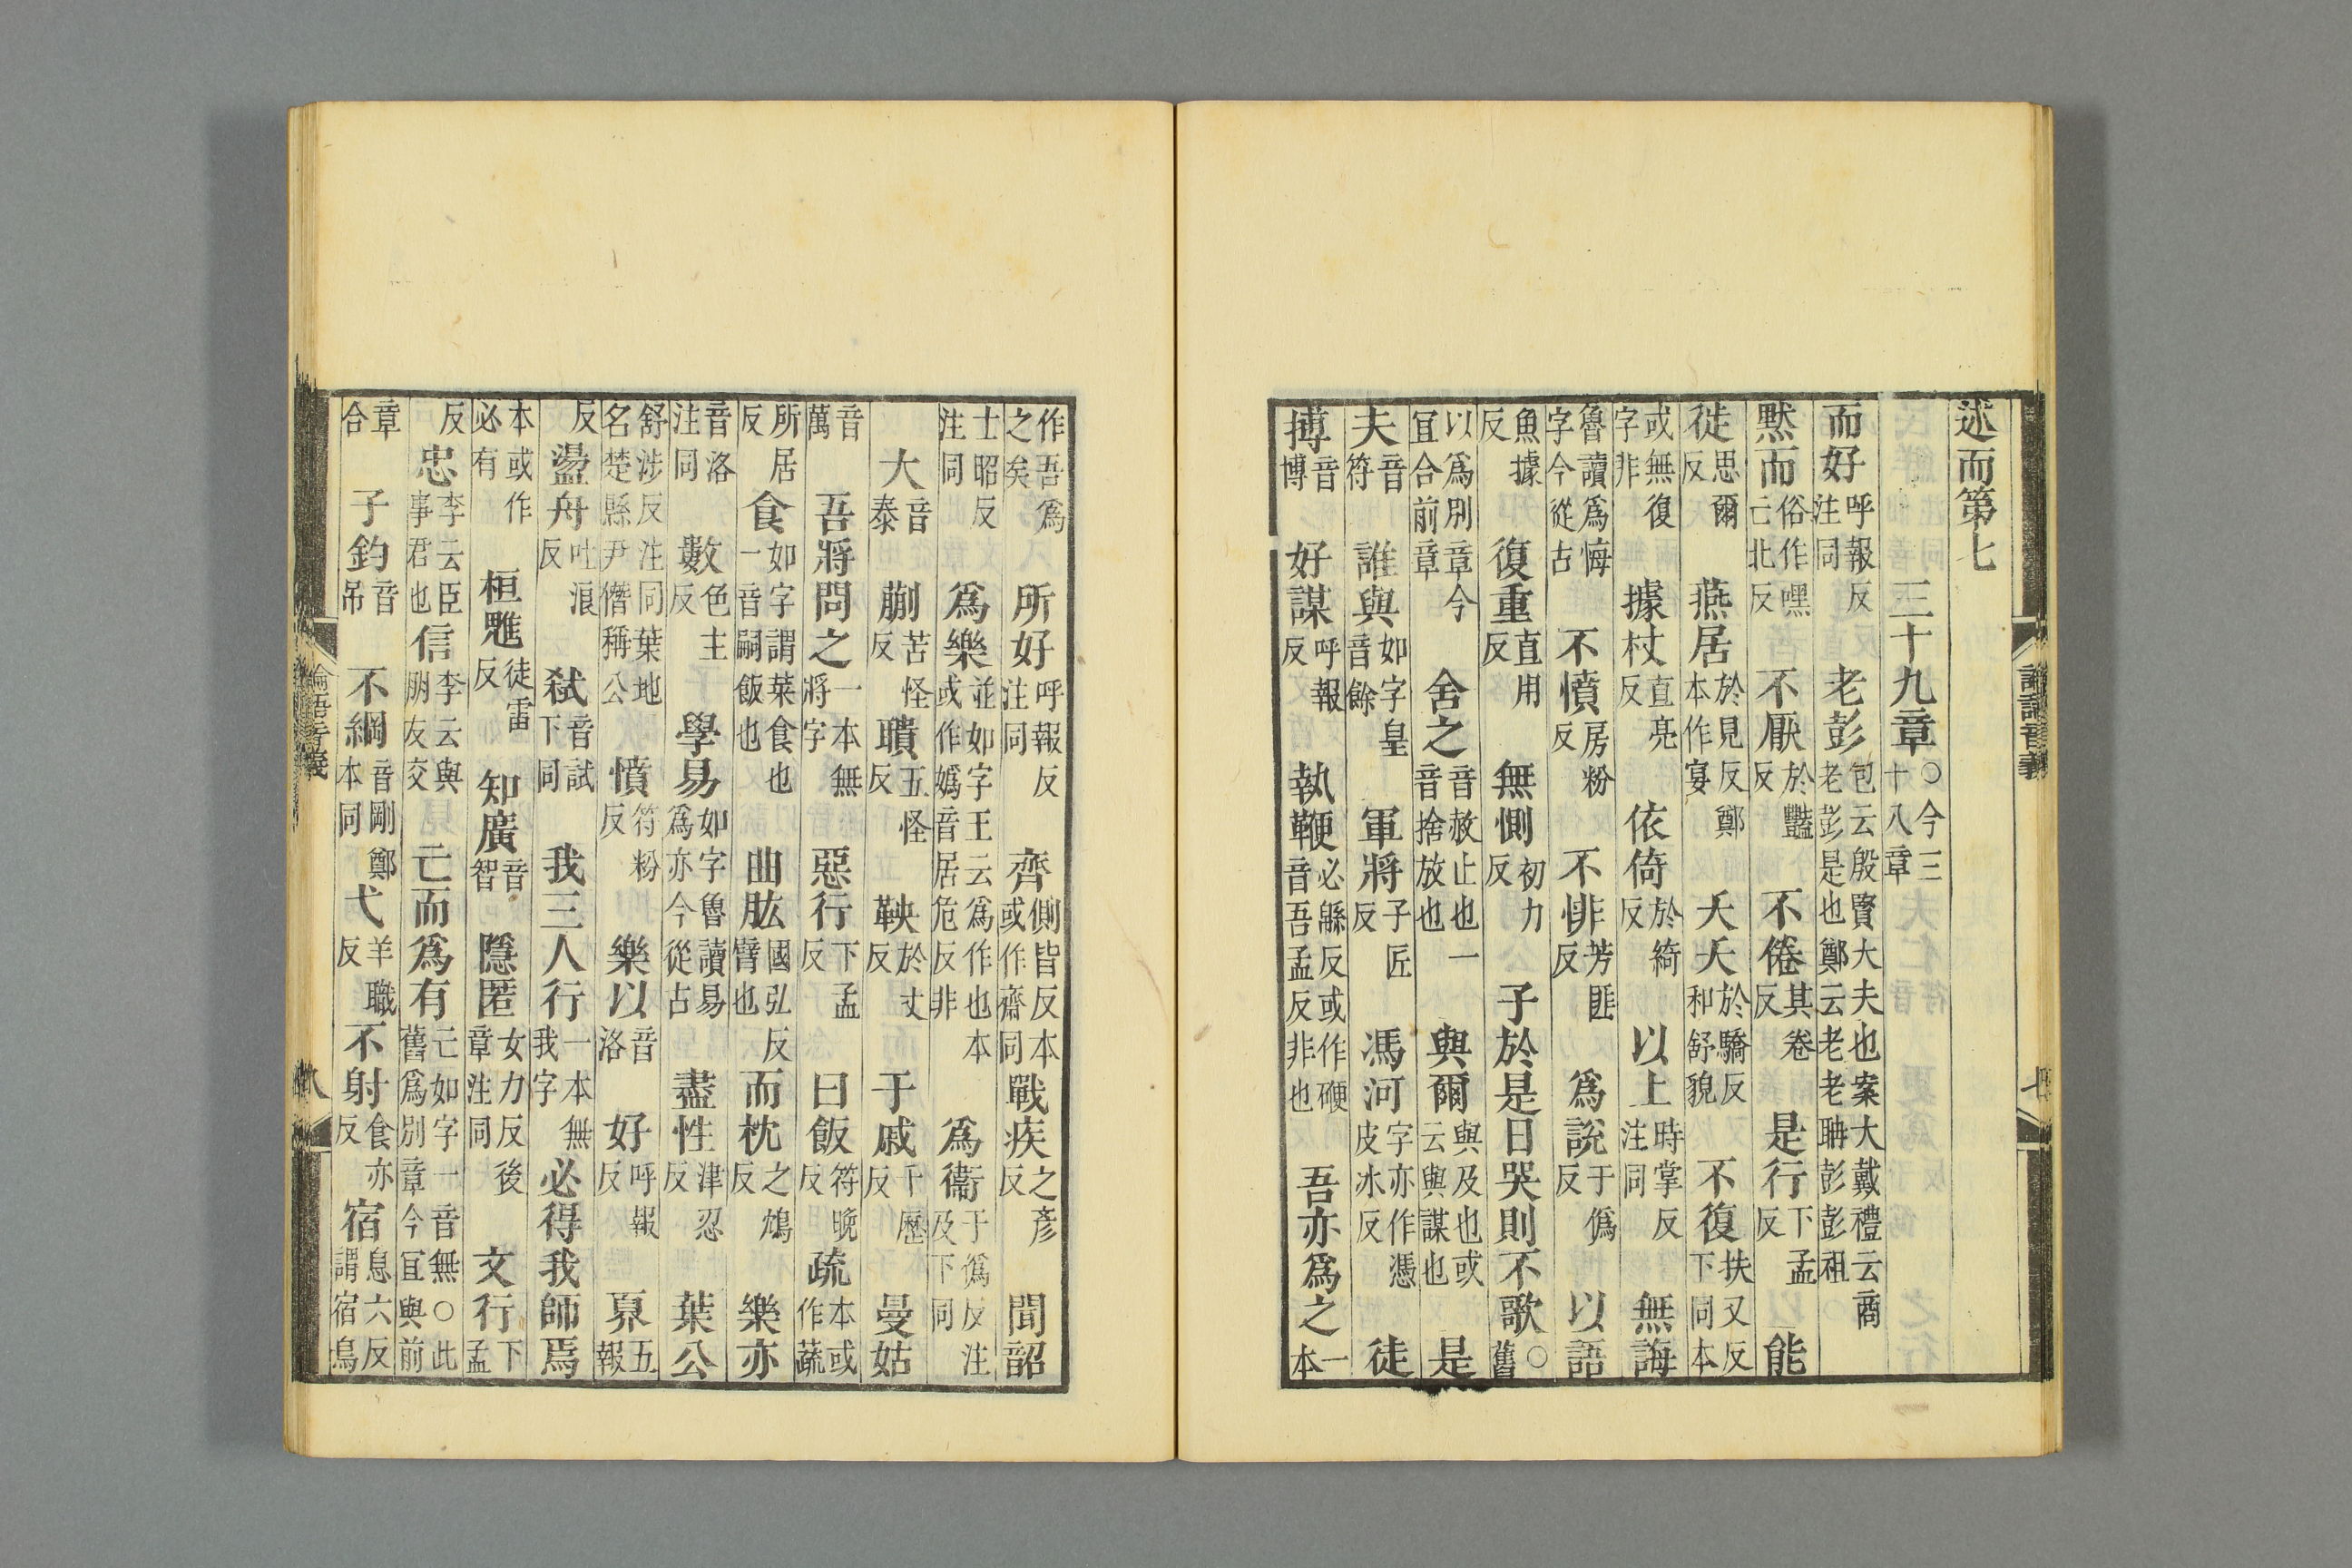 論語音義 七
述而第七
三十九章○今三十八章
而好呼報反注同老彭包云殷賢大夫也案大戴禮云商老彭是也鄭云老老聃彭彭祖
默而俗作嘿亡北反不厭於豔反不倦其卷反是行下孟反能
徙思爾反燕居於見反鄭本作宴夭夭於驕反和舒貌不復扶又反下同本
或無復字非據杖直亮反依倚於綺反以上時掌反注同無誨
魯讀爲悔字今從古不憤房粉反不悱芳匪反爲說于僞反以語
魚據反復重直用反無惻初力反子於是日哭則不歌○舊
以爲別章今宜合前章舍之音赦止也一音捨放也與爾與及也或云與謀也是
夫音符誰與如字皇音餘軍將子匠反馮河字亦作憑皮冰反徒
搏音博好謀呼報反執鞭必緜反或作硬音吾孟反非也吾亦爲之一本
作吾爲之矣所好呼報反注同齊側皆反本或作齋同戰疾之彥反聞韶
士昭反注同爲樂並如字王云爲作也本或作嬀音居危反非爲衞于僞反注及下同
大音泰蒯苦怪反聵五怪反鞅於丈反于戚千歷反曼姑
音萬吾將問之一本無將字惡行下孟反曰飯符晚反疏本或作蔬
所居反食如字謂菜食也一音嗣飯也曲肱國弘反臂也而枕之鴆反樂亦
音洛注同數色主反學易如字魯讀易爲亦今從古盡性津忍反葉公
舒涉反注同葉地名楚縣尹僭稱公憤符粉反樂以音洛好呼報反奡五報
反盪舟吐浪反弑音試下同我三人行一本無我字必得我師焉
本或作必有桓魋徒雷反知廣音智隱匿女力反後章注同文行下孟
反忠李云臣事君也信李云與朋友交亡而爲有亡如字一音無○此舊爲別章今宜與前
章合子釣音吊不綱音剛鄭本同弋羊職反不射食亦反宿息六反謂宿鳥
論語音義 八